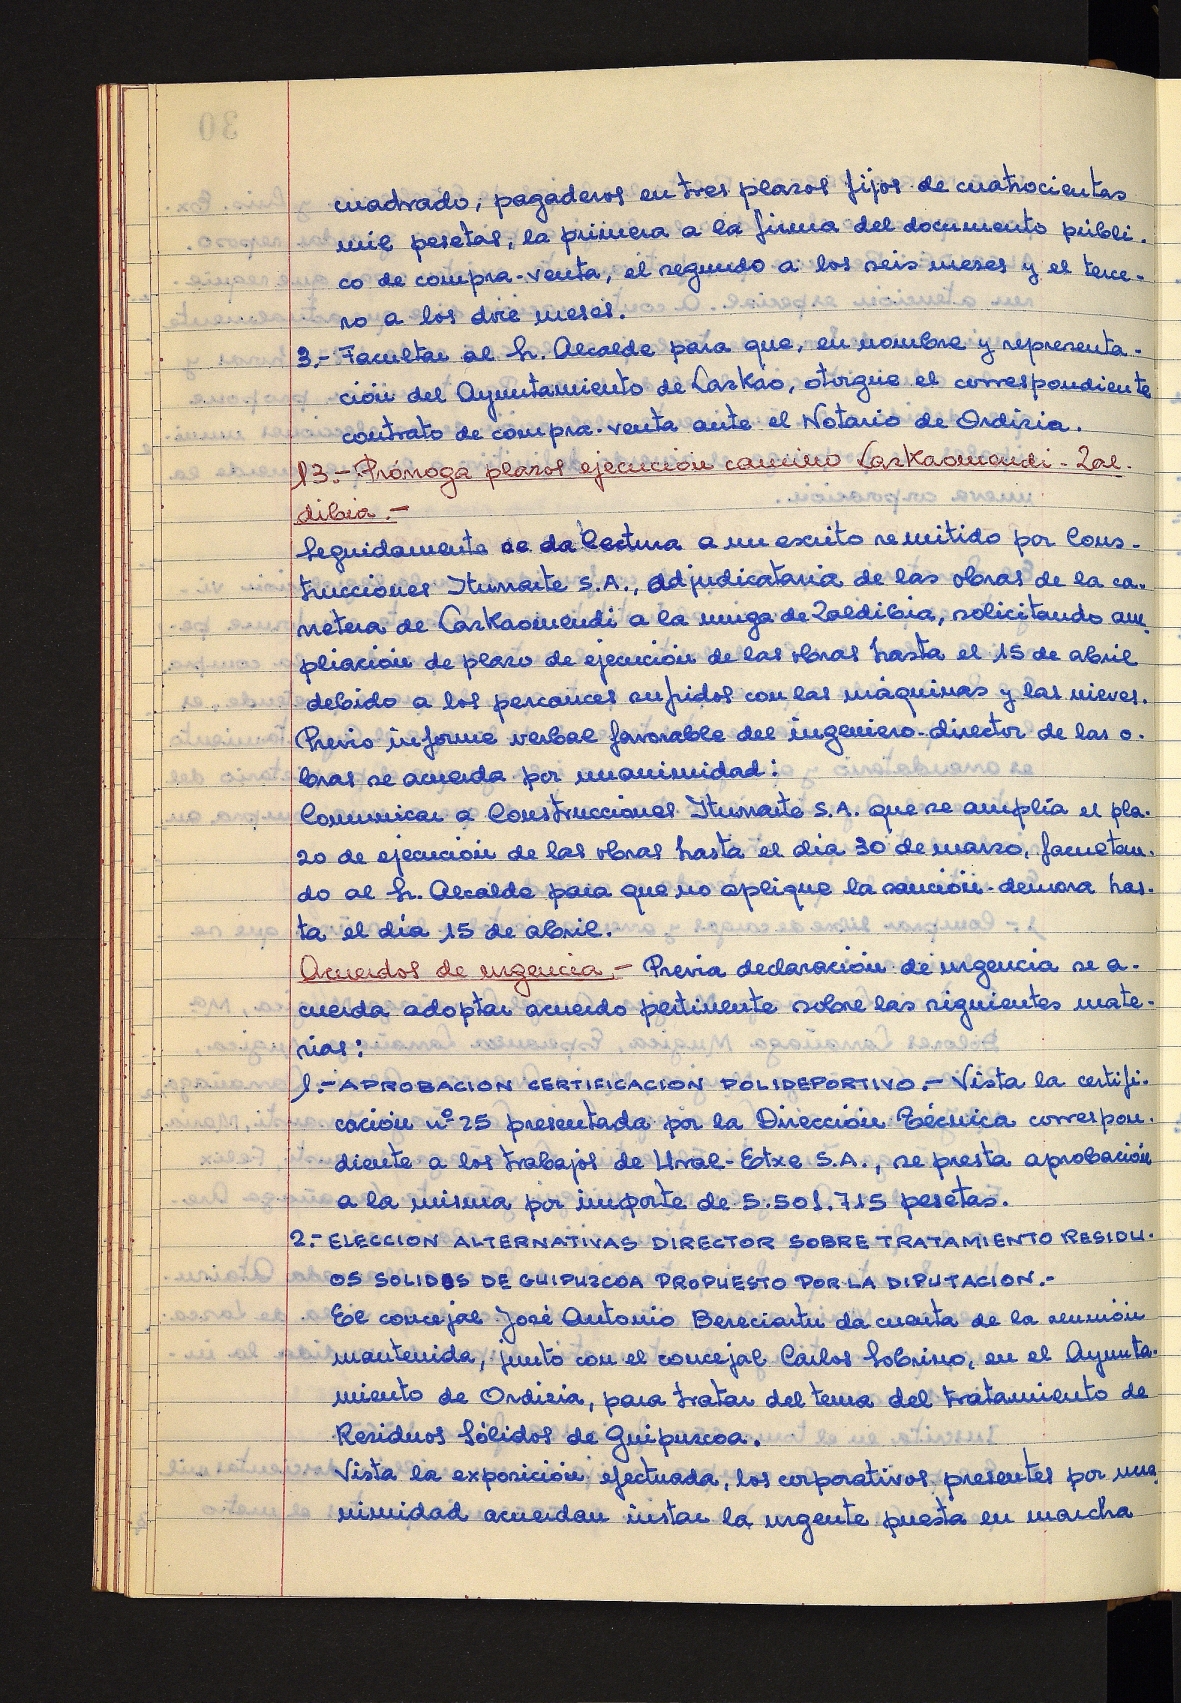 cuadrado, pagaderos en tres plazos fijos de cuatrocientas
mil pesetas, la primera a la firma del documento públi-
co de compra-venta, el segundo a los seis meses y el terce-
ro a los doce meses.
3.- Facultar al Sr. Alcalde para que, en nombre y representa-
ción del Ayuntamiento de Lazkao, otorgue el correspondiente
contrato de compra-venta ante el Notario de Ordizia.
13.- Prórroga plazos ejecución camino Lazkaomendi-Zal-
dibia.-
Seguidamente se da lectura a un escrito remitido por Cons-
trucciones Iturrarte S.A., adjudicataria de las obras de la ca-
rretera de Lazkaomendi a la muga de Zaldibia, solicitando am-
pliación de plazo de ejecución de las obras hasta el 15 de abril
debido a los percances sufridos con las máquinas y las nieves.
Previo informe verbal favorable del ingeniero-director de las o-
bras se acuerda por unanimidad:
Comunicar a Construcciones Iturrarte S.A. que se amplía el pla-
zo de ejecución de las obras hasta el día 30 de marzo, facultan-
do al Sr. Alcalde para que no aplique la sanción-demora has-
ta el día 15 de abril.
Acuerdos de urgencia.- Previa declaración de urgencia se a-
cuerda adoptar acuerdo pertinente sobre las siguientes mate-
rias:
1.- APROBACION CERTIFICACION POLIDEPORTIVO.- Vista la certifi-
cación nº 25 presentada por la Dirección Técnica correspon-
diente a los trabajos de Ural-Etxe S.A., se presta aprobación
a la misma por importe de 5.501.715 pesetas.
2.- ELECCION ALTERNATIVAS DIRECTOR SOBRE TRATAMIENTO RESIDU-
OS SOLIDOS DE GUIPUZCOA PROPUESTO POR LA DIPUTACION.-
El concejal José Antonio Bereciartu da cuenta de la reunión
mantenida, junto con el concejal Carlos Sobrino, en el Ayunta-
miento de Ordizia, para tratar del tema del tratamiento de
Residuos Sólidos de Guipuzcoa.
Vista la exposición efectuada, los corporativos presentes por una-
nimidad acuerdan instar la urgente puesta en marcha